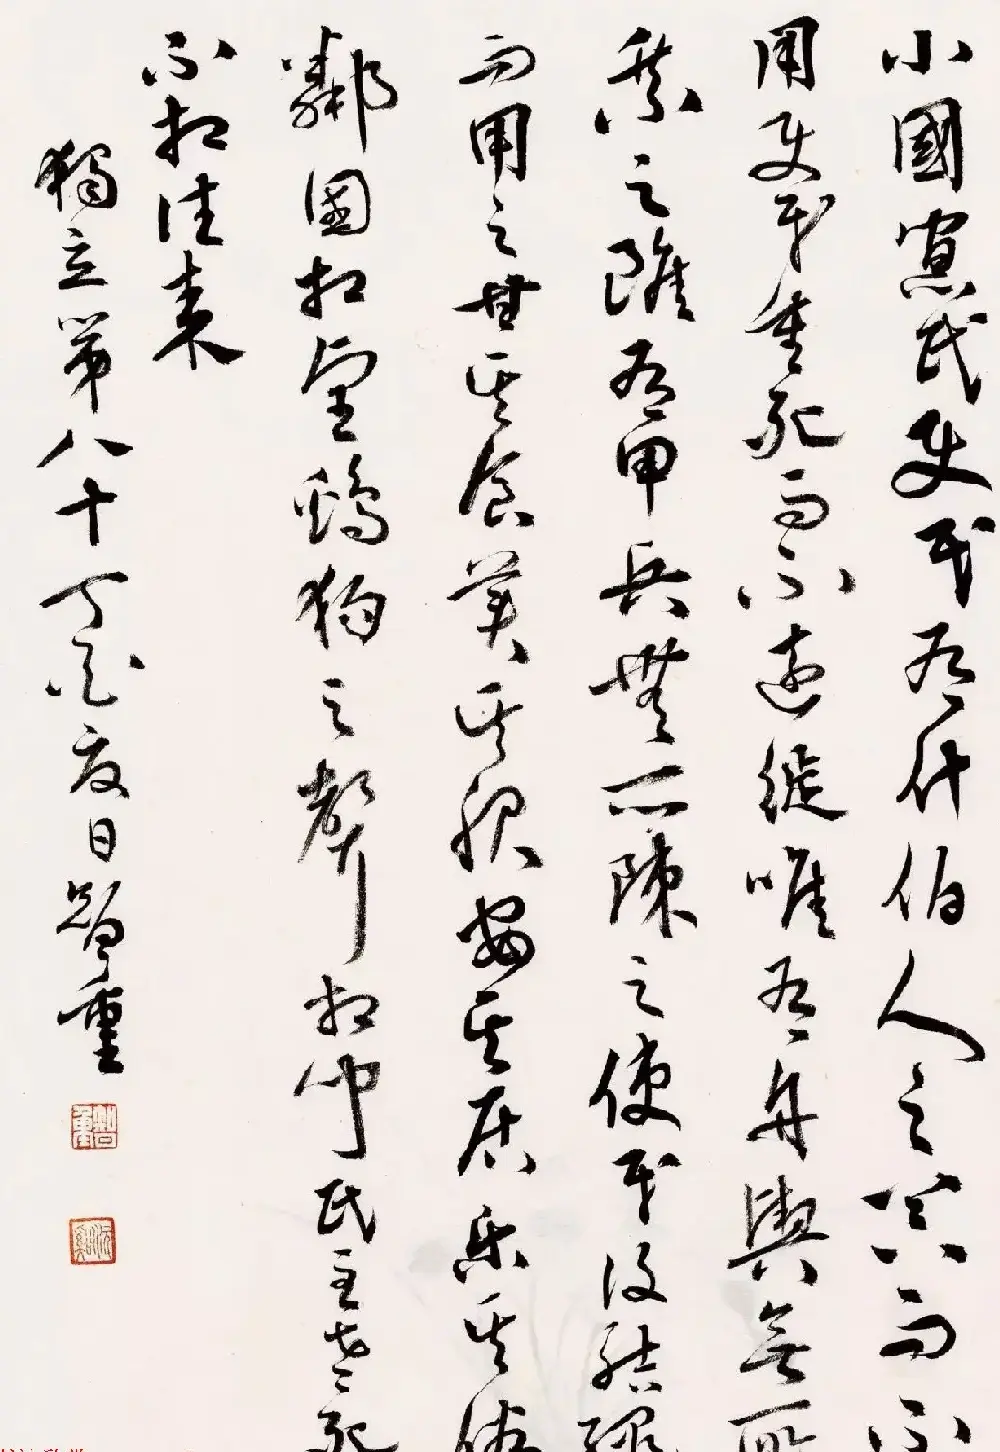 小國寡民使民有什伯人之器而不
用使民重死而不遠徙唯有舟輿無所
乘之雖有甲兵無所陳之使民復結繩
而用之甘其食美其服安其居樂其俗
鄰國相望鷄狗之聲相聞民至老死
不相往來
獨立第八十丁亥夏日智重
智重